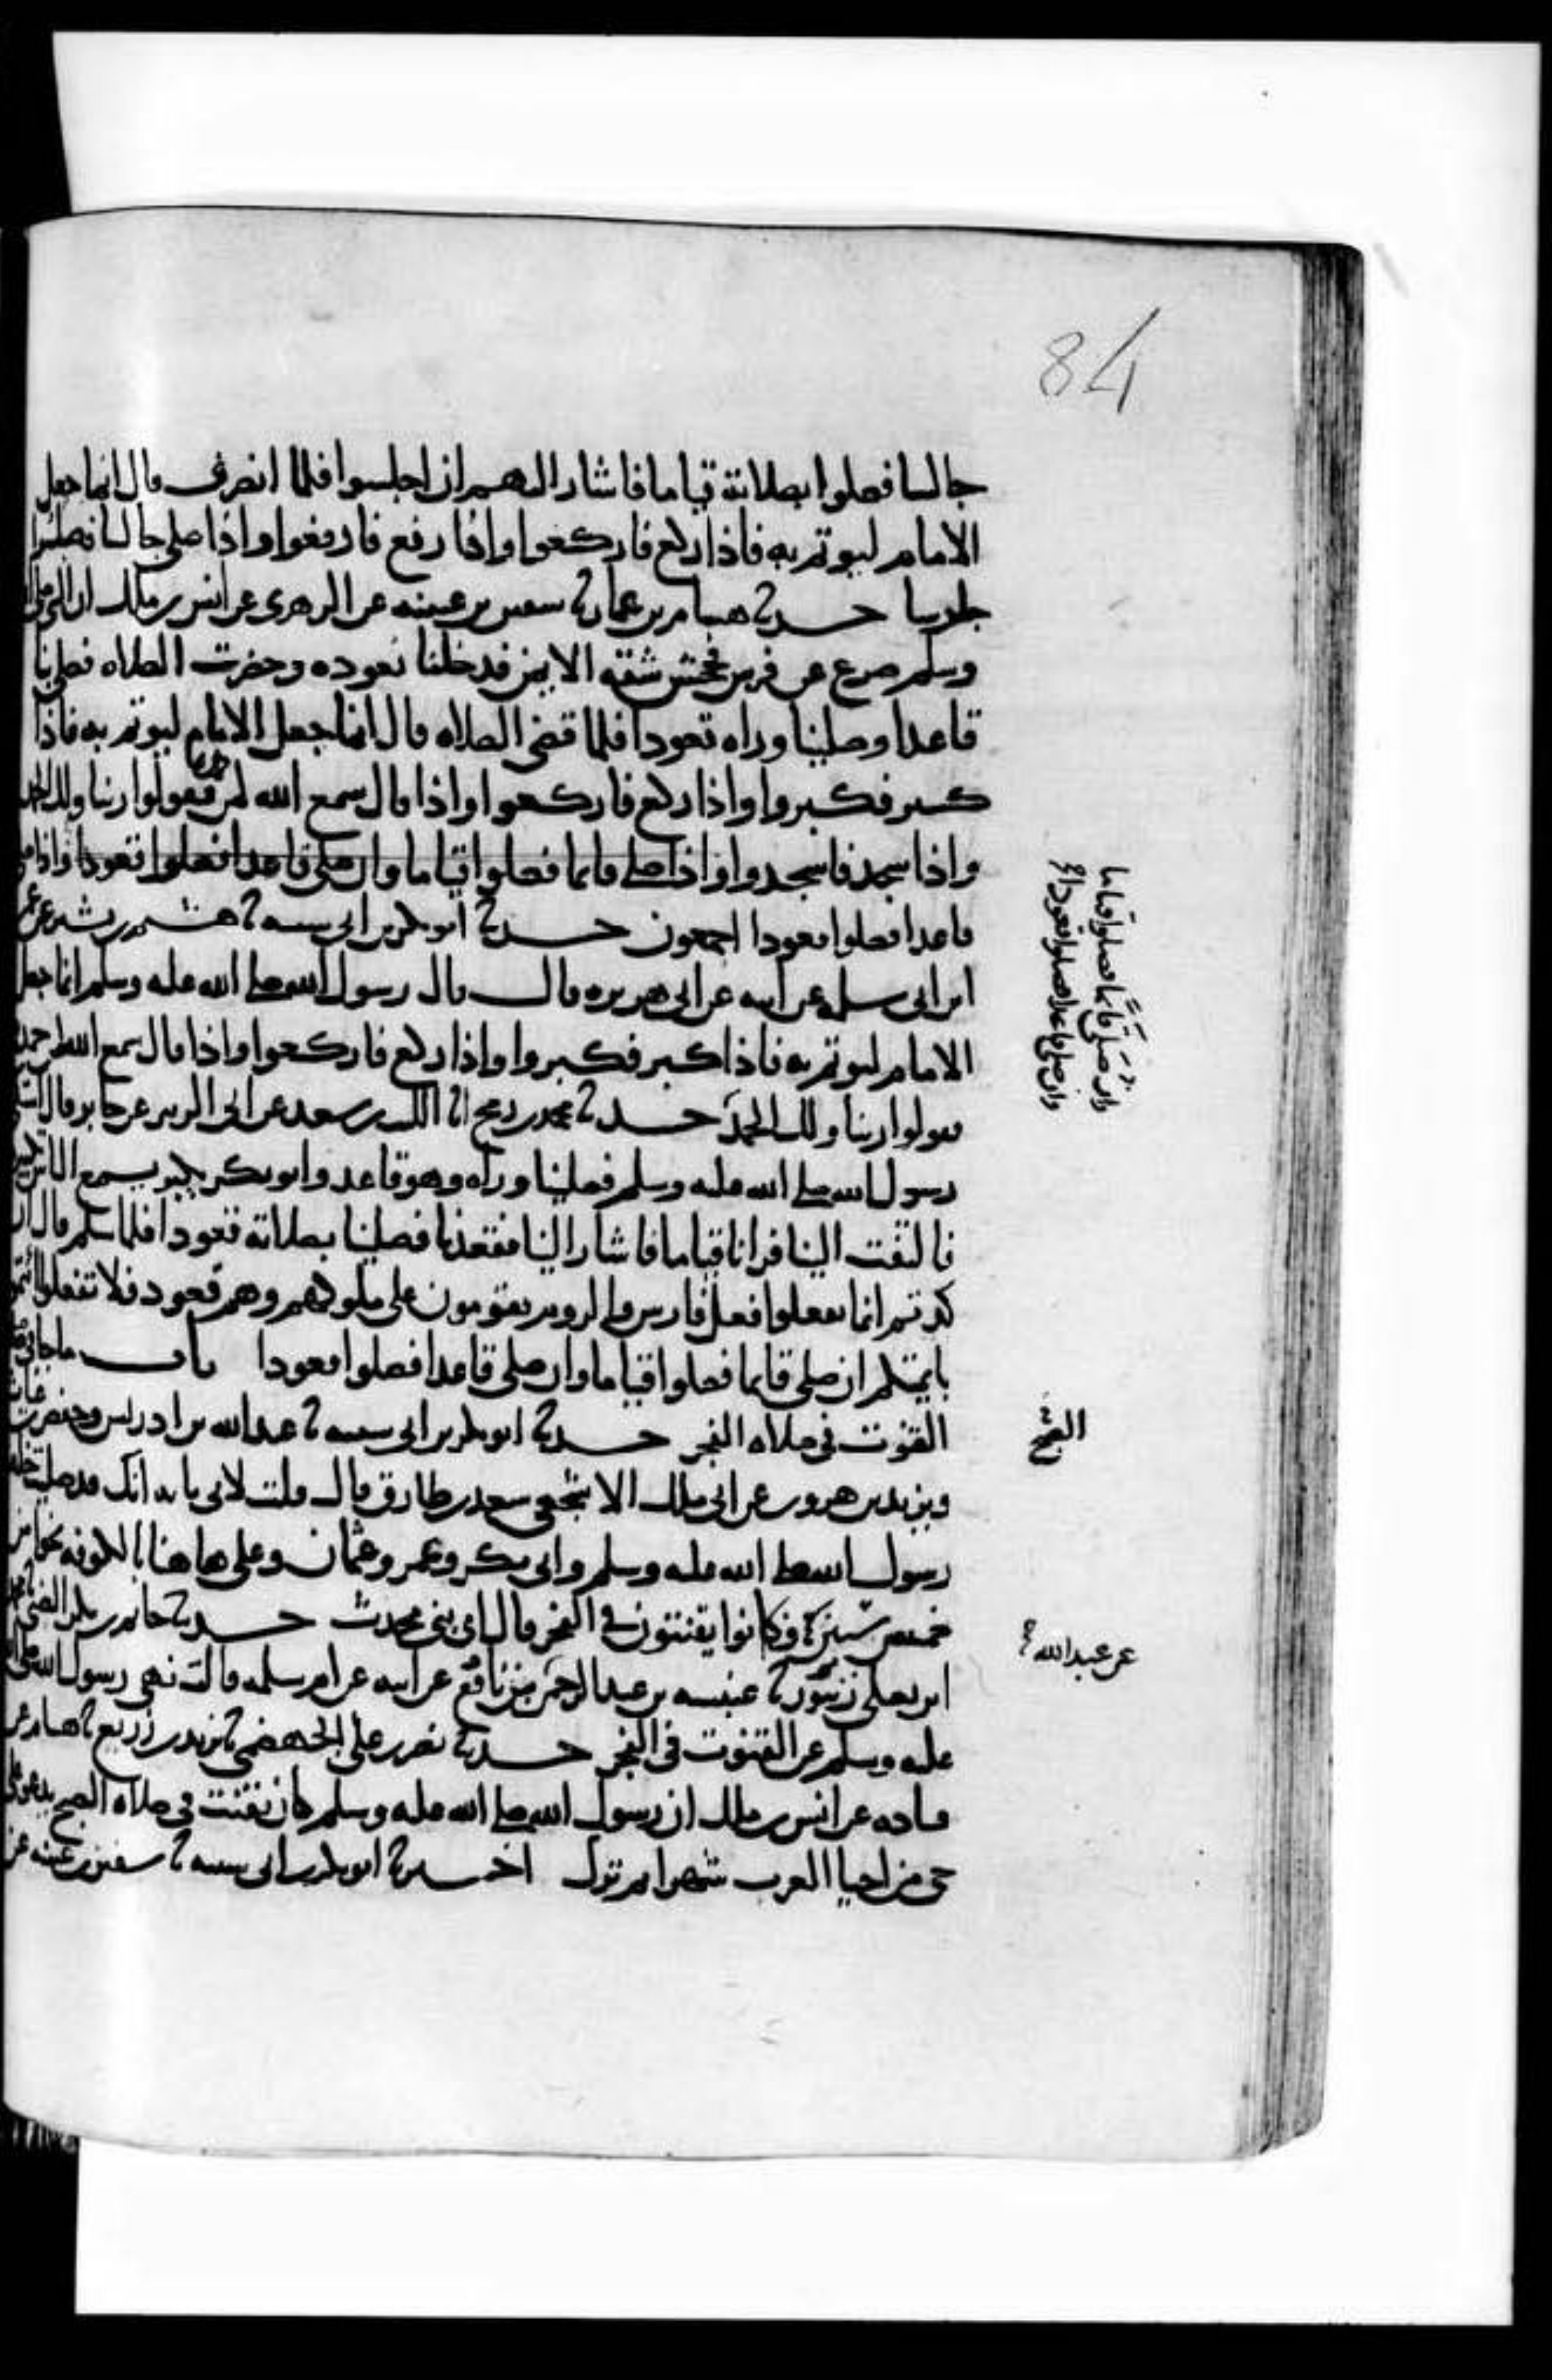 84
جالسا فصلوا بصلاته قياما فاشار اليهم ان اجلسوا فلما انصرف قال انما جعل
الامام ليوتم به فاذا ركع فاركعوا واذا رفع فارفعوا واذا صلى جالسا فصلوا
جلوسا حدثنا هشام بن عمار ثنا سفين بن عيينه عن الزهرى عن انس بن ملك ان النبي صلى
وسلم صرع عن فرس فجحش شقه الايمن فدخلنا نعوده وحضرت الصلاه فصلى بنا
قاعدا وصلينا وراه قعودا فلما قضى الصلاه قال انما جعل الامام ليوتم به فاذا
كبر فكبروا واذا ركع فاركعوا واذا قال سمع الله لمن حمده فقولوا ربنا ولك الحمد
واذا سجد فاسجدوا واذا صلى قايما فصلوا قياما وان صلى قاعدا فصلوا قعودا واذا صلى
قاعدا فصلوا قعودا اجمعون حدثنا ابو بكر بن ابي شيبه ثنا هشيم بن بشير عن عمر
ابن ابي سلمه عن ابيه عن ابي هريره قال قال رسول الله صلى الله عليه وسلم انما جعل
الامام ليوتم به فاذا كبر فكبروا واذا ركع فاركعوا واذا قال سمع الله لمن حمده
فقولوا ربنا ولك الحمد حدثنا محمد بن رمح انا الليث بن سعد عن ابي الزبير عن جابر قال اشتكى
رسول الله صلى الله عليه وسلم فصلينا وراه وهو قاعد وابو بكر يكبر يسمع الناس تكبيره
فالتفت الينا فرانا قياما فاشار الينا فقعدنا فصلينا بصلاته قعودا فلما سلم قال ان
كدتم انما تفعلوا فعل فارس والروم يقومون على ملوكهم وهم قعود فلا تفعلوا ائتموا
بايمتكم ان صلى قايما فصلوا قياما وان صلى قاعدا فصلوا قعودا باب ماجا في
القنوت في صلاه الفجر حدثنا ابو بكر بن ابي شيبه ثنا عبد الله بن ادريس وحفص بن غياث
ويزيد بن هرون عن ابي ملك الاشجعي سعد بن طارق قال قلت لابي يابه انك قد صليت خلف
رسول الله صلى الله عليه وسلم وابي بكر وعمر وعثمان وعلي هاهنا بالكوفه نحوا من
خمس سنين فكانوا يقنتون في الفجر قال اي بني محدث حدثنا حاتم بن بكر الضبي ثنا محمد
ابن يعلى زنبور ثنا عنبسه بن عبد الرحمن بن نافع عن ابيه عن ام سلمه قالت نهى رسول الله صلى الله
عليه وسلم عن القنوت في الفجر حدثنا نصر بن علي الجهضمي ثنا يزيد بن زريع ثنا هشام عن
قتاده عن انس بن ملك ان رسول الله صلى الله عليه وسلم كان يقنت في صلاه الصبح يدعو على
حي من احيا العرب شهرا ثم ترك اخبرنا ابو بكر بن ابي شيبه ثنا سفين بن عيينه عن
وان صلى قائما فصلوا قياما
وان صلى قاعدا فصلوا قعودا
الصبح
عن عبد الله